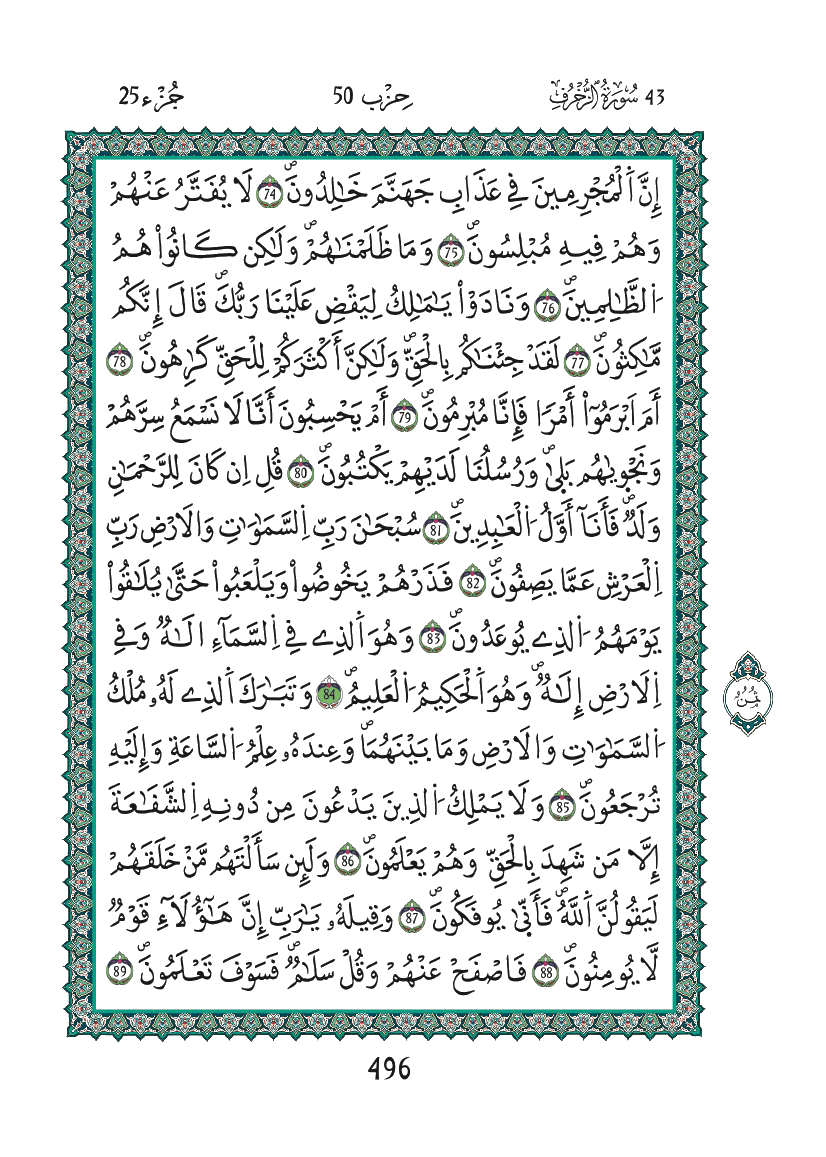 43 سُورَةُ الزُّخْرُفِ حِزْب 50 جُزْء 25
إِنَّ اَ۬لْمُجْرِمِينَ فِے عَذَابِ جَهَنَّمَ خَٰلِدُونَۖ 74 لَا يُفَتَّرُ عَنْهُمْ
وَهُمْ فِيهِ مُبْلِسُونَۖ 75 وَمَا ظَلَمْنَٰهُمْۖ وَلَٰكِن كَانُواْ هُمُ
اُ۬لظَّٰلِمِينَۖ 76 وَنَادَوْاْ يَٰمَٰلِكُ لِيَقْضِ عَلَيْنَا رَبُّكَۖ قَالَ إِنَّكُم
مَّٰكِثُونَۖ 77 لَقَدْ جِئْنَٰكُم بِالْحَقِّۖ وَلَٰكِنَّ أَكْثَرَكُمْ لِلْحَقِّ كَٰرِهُونَۖ 78
أَمَ اَبْرَمُوٓاْ أَمْراٗ فَإِنَّا مُبْرِمُونَۖ 79 أَمْ يَحْسِبُونَ أَنَّا لَا نَسْمَعُ سِرَّهُمْ
وَنَجْو۪يٰهُم بَل۪يٰۖ وَرُسُلُنَا لَدَيْهِمْ يَكْتُبُونَۖ 80 قُلِ اِن كَانَ لِلرَّحْمَٰنِ
وَلَدٞۖ فَأَنَآ أَوَّلُ اُ۬لْعَٰبِدِينَۖ 81 سُبْحَٰنَ رَبِّ اِ۬لسَّمَٰوَٰتِ وَالَارْضِ رَبِّ
اِ۬لْعَرْشِ عَمَّا يَصِفُونَۖ 82 فَذَرْهُمْ يَخُوضُواْ وَيَلْعَبُواْ حَتَّىٰ يُلَٰقُواْ
يَوْمَهُمُ اُ۬لذِے يُوعَدُونَۖ 83 وَهُوَ اَ۬لذِے فِے اِ۬لسَّمَآءِ الَٰهٞ وَفِے
اِ۬لَارْضِ إِلَٰهٞۖ وَهُوَ اَ۬لْحَكِيمُ اُ۬لْعَلِيمُۖ 84 وَتَبَٰرَكَ اَ۬لذِے لَهُۥ مُلْكُ
اُ۬لسَّمَٰوَٰتِ وَالَارْضِ وَمَا بَيْنَهُمَاۖ وَعِندَهُۥ عِلْمُ اُ۬لسَّاعَةِ وَإِلَيْهِ
تُرْجَعُونَۖ 85 وَلَا يَمْلِكُ اُ۬لذِينَ يَدْعُونَ مِن دُونِهِ اِ۬لشَّفَٰعَةَ
إِلَّا مَن شَهِدَ بِالْحَقِّ وَهُمْ يَعْلَمُونَۖ 86 وَلَئِن سَأَلْتَهُم مَّنْ خَلَقَهُمْ
لَيَقُولُنَّ اَ۬للَّهُۖ فَأَنّ۪يٰ يُوفَكُونَۖ 87 وَقِيلَهُۥ يَٰرَبِّ إِنَّ هَٰٓؤُلَآءِ قَوْمٞ
لَّا يُومِنُونَۖ 88 فَاصْفَحْ عَنْهُمْ وَقُلْ سَلَٰمٞۖ فَسَوْفَ تَعْلَمُونَۖ 89
ثُمُنٌ
496